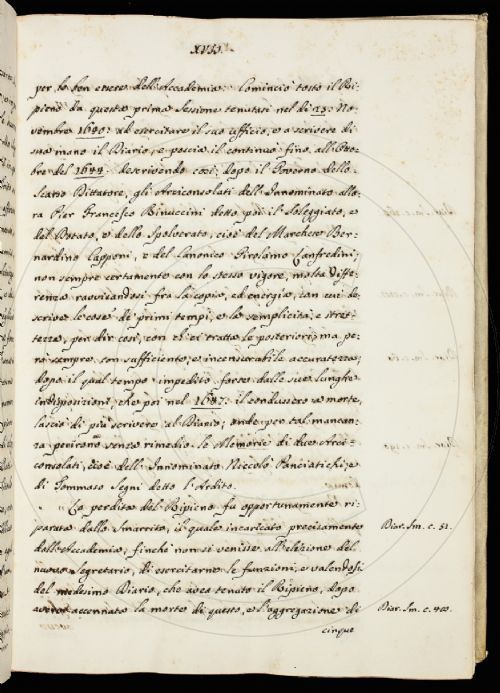 XVII.
per lo ben essere dell'Accademia: Cominciò tosto il Ri-
pieno da questa prima Sessione tenutasi nel dì 13: No-
vembre 1640: ad esercitare il suo ufficio, e a scrivere di
sua mano il Diario, e poscia il continuò fino all'Otto-
bre del 1644: descrivendo così, dopo il Governo dello
Scarso Dittatore, gli Arciconsolati dell'Innominato allo-
ra Pier Francesco Rinuccini detto poi il Soleggiato, e
del Potato, e dello Spolverato, cioè del Marchese Ber-
nardino Capponi, e del Canonico Girolamo Lanfredini;
non sempre certamente con lo stesso vigore, molta diffe-
renza ravvisandosi fra la copia, ed energia con cui de-
scrive le cose de' primi tempi, e la semplicità, e stret-
tezza, per dir così, con ch'ei tratta le posteriori, ma pe-
rò sempre con sufficiente, e incensurabile accuratezza,
dopo il qual tempo impedito forse dalle sue lunghe
indisposizioni, che poi nel 1647: il condussero a morte,
lasciò di più scrivere al Diario; onde per tal mancan-
za perirono senza rimedio le Memorie di due Arci-
consolati, cioè dell'Innominato Niccolò Panciatichi, e
di Tommaso Segni detto l'Ardito.
La perdita del Ripieno fu opportunamente ri-
parata dallo Smarrito, il quale incaricato precisamente
dall'Accademia, finchè non si venisse all'elezione del
nuovo Segretario, di esercitarne le funzioni, e valendosi
del medesimo Diario, che avea tenuto il Ripieno, dopo
avervi accennato la morte di questo, e l'aggregazione di
cinque
Diar. Sm. c. 51.
Diar. Sm. c.